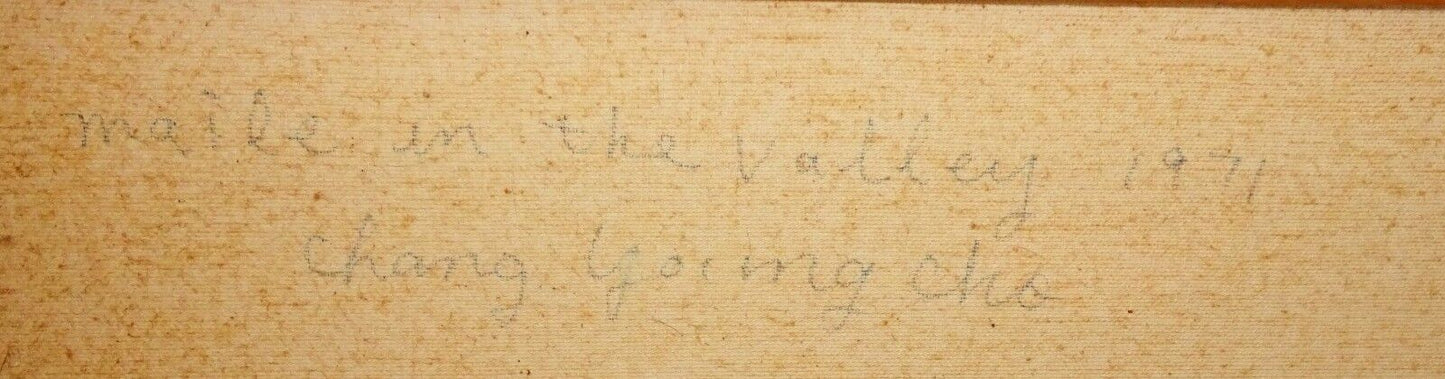 maile in the Valley 1971
Chang Young Cho